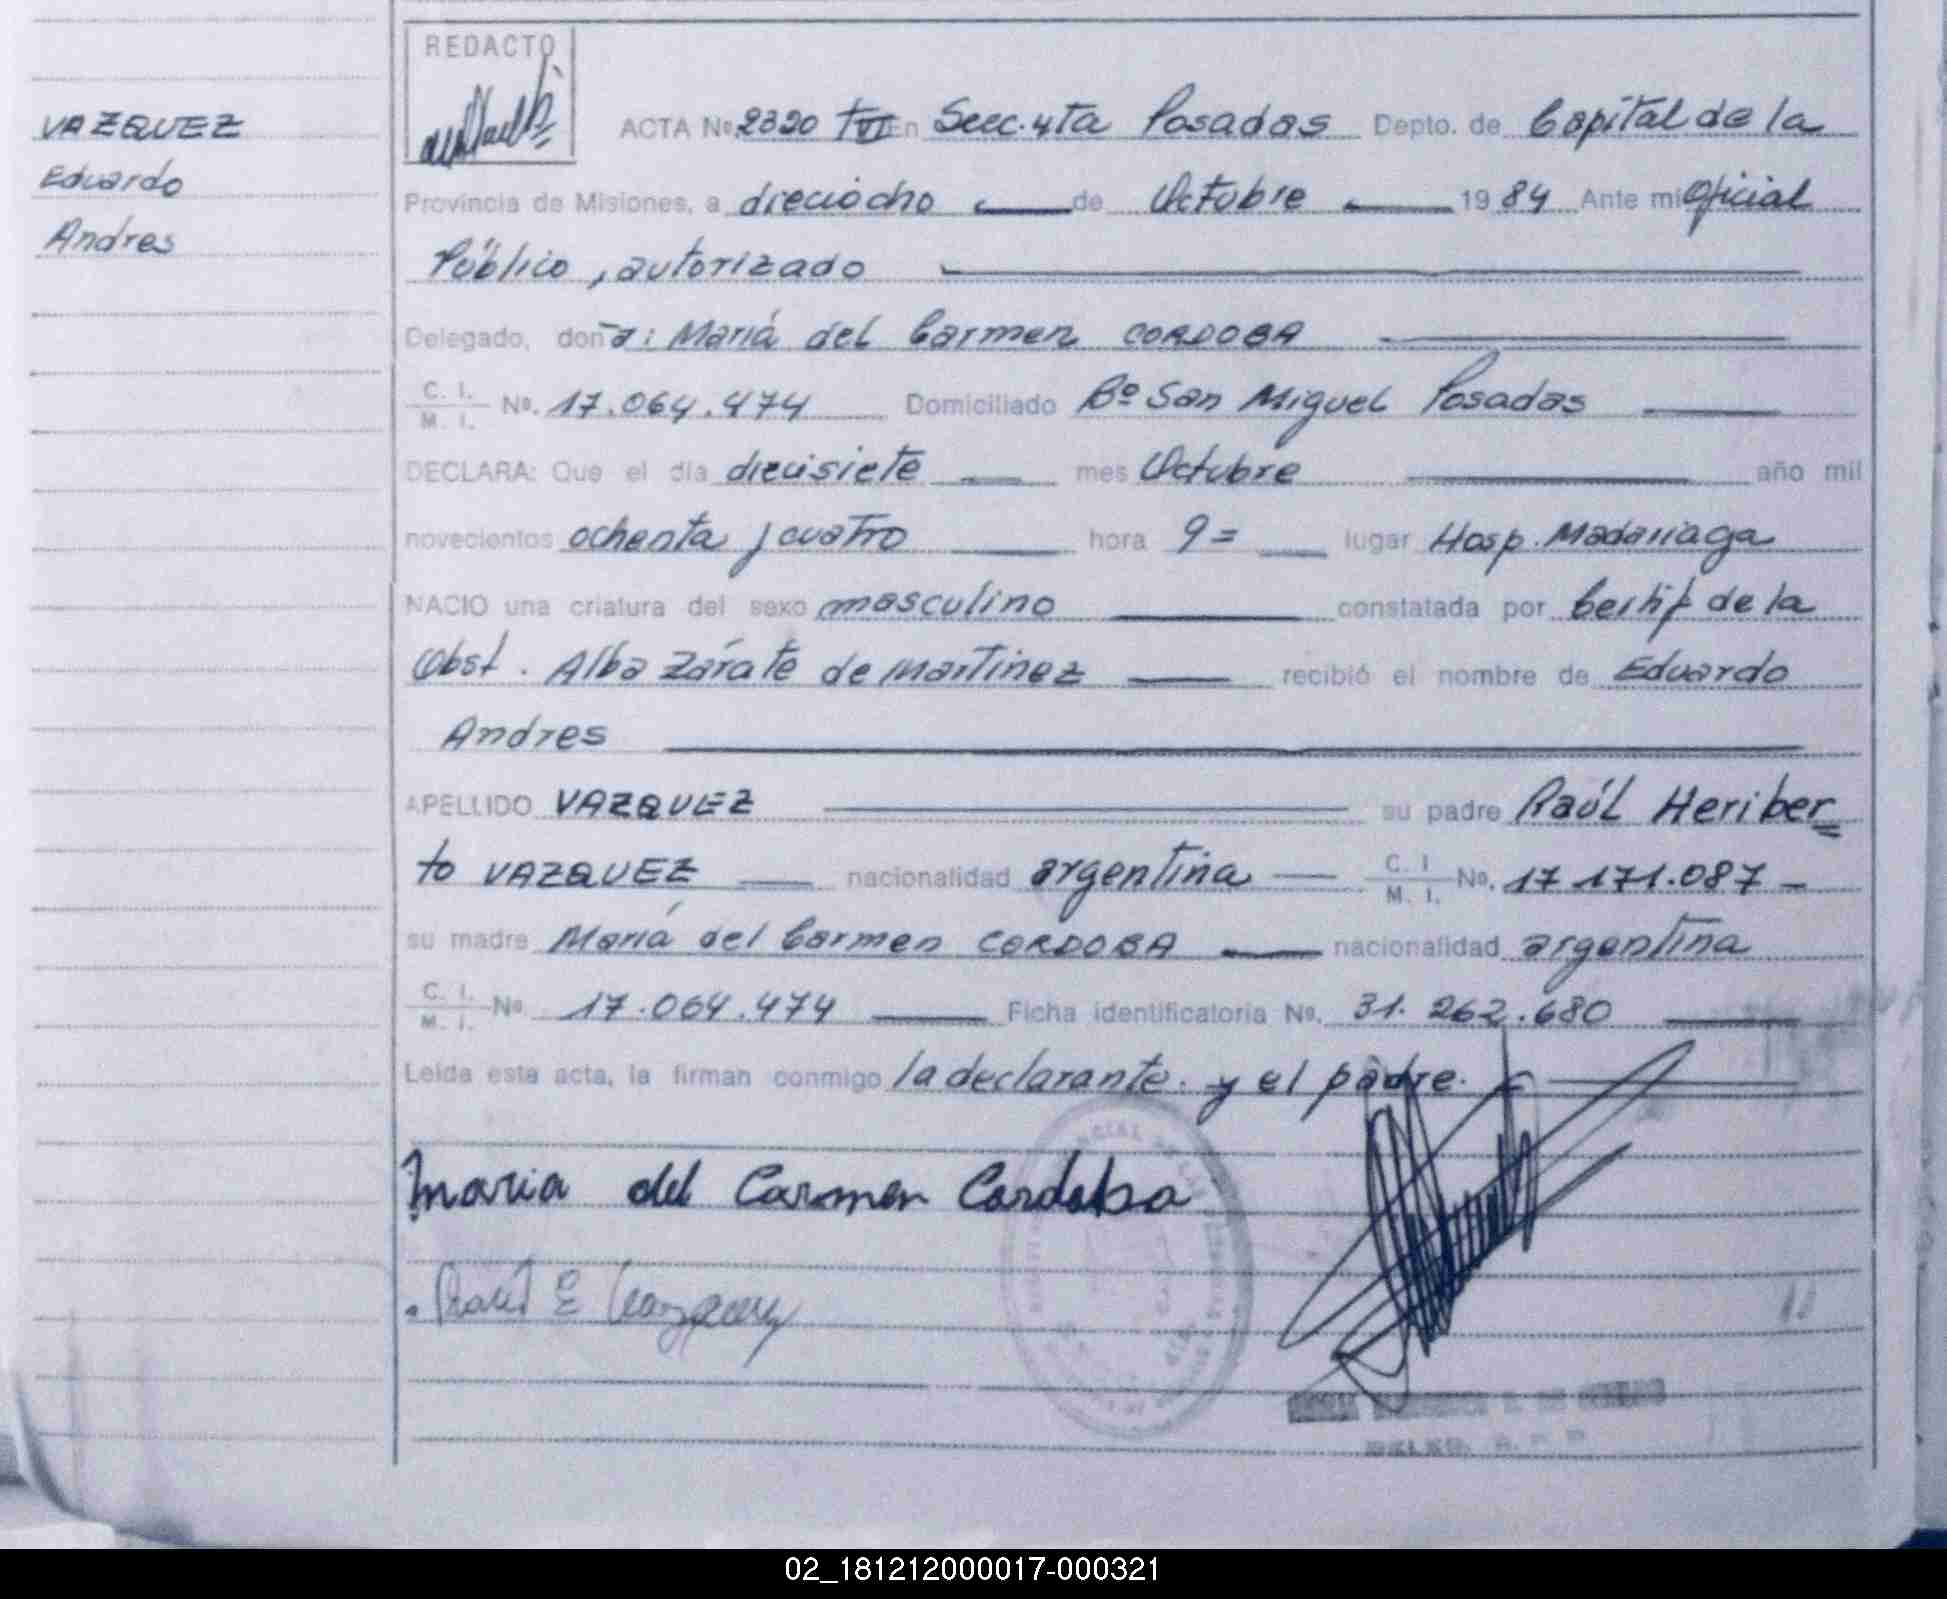 VAZQUEZ
Eduardo
Andres
REDACTO
ACTA No 2320 TVI En Secc. 4ta Posadas Depto. de Capital de la
Provincia de Misiones, a dieciocho de Octubre 19 84 Ante mi Oficial
Público, autorizado
Delegado, doña: María del Carmen CORDOBA
C. I. M. I. No. 17.064.474 Domiciliado Bº San Miguel Posadas
DECLARA: Que el día diecisiete mes Octubre año mil
novecientos ochenta y cuatro hora 9= lugar Hosp. Madariaga
NACIO una criatura del sexo masculino constatada por Certif de la
Obst. Alba Zárate de Martinez recibió el nombre de Eduardo
Andres
APELLIDO VAZQUEZ su padre Raúl Heriber
to VAZQUEZ nacionalidad argentina C. I. M. I. No. 17 171.087
su madre María del Carmen CORDOBA nacionalidad argentina
C. I. M. I. No. 17.064.474 Ficha identificatoria No. 31.262.680
Leída esta acta, la firman conmigo la declarante. y el padre.
Maria del Carmen Cordoba
DELEG. R. P. P.
02_181212000017-000321